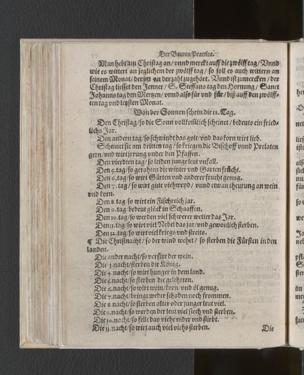 Der Bauren Practica.
Man hebt diß Christag an / vnnd merckt auff die zwölff tag / Vnnd
wie es wittert an jeglichem der zwölff tag / so soll es auch wittern an
seinem Monat / der zu der jarzal gehört. Vnnd ist zu mercken / der
Christag bleibet den Jenner / S. Steffans tag den Hornung / Sanct
Johanns tag den Mertzen / vnnd also für vnd für / biß auff den zwölff-
ten tag vnd letzsten Monat.
Von der Sonnen schein die 12. Tag.
Den Christag / so die Sonn vollkomlich scheinet / bedeut ein fried
lichs Jar.
Den andern tag / so schwindt das golt / vnd das korn wirt lieb.
Scheinet sie am dritten tag / so kriegen die Bischoff vnnd Prelaten
gern / vnd wirt jrrung vnder den Pfaffen.
Den vierdten tag / so leiden junge leut vnfall.
Den 5. tag / so gerahten die winter vnd Garten frücht.
Den 6. tag / so wirt Gärten vnd anderer frucht genug.
Den 7. tag / so wirt gut viehweyd / vnnd etwan theurung an wein
vnd korn.
Den 8. tag / so wirt ein Fischreich jar.
Den 9. tag / bedeut glück in Schaaffen.
Den 10. tag / so werden viel schwerer wetter das Jar.
Den 11. tag / so wirt viel Nebel das jar / vnd gewonlich sterben.
Den 12. tag / so wirt viel kriegs vnd streits.
¶ Die Christnacht / so der wind wehet / so sterben die Fürsten in den
landen.
Die ander nacht / so verdirbt der wein.
Die 3. nacht / sterben die König.
Die 4. nacht / so wirt hunger in dem land.
Die 5. nacht / so sterben die gelehrten.
Die 6. nacht / so wirt wein / korn / vnd öl genug.
Die 7. nacht / bringt weder schaden noch frommen.
Die 8. nacht / so sterben alter oder junger leut viel.
Die 9. nacht / so werden der leut viel siech vnd sterben.
Die 10. nacht / so felle das viehe nider vnd stirbt.
Die 11. nacht / so wirt auch viel viehs sterben.
Die